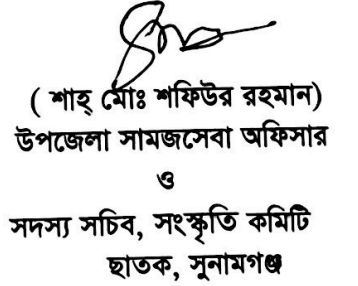 ( শাহ্ মোঃ শফিউর রহমান)
উপজেলা সামজসেবা অফিসার
ও
সদস্য সচিব, সংস্কৃতি কমিটি
ছাতক, সুনামগঞ্জ